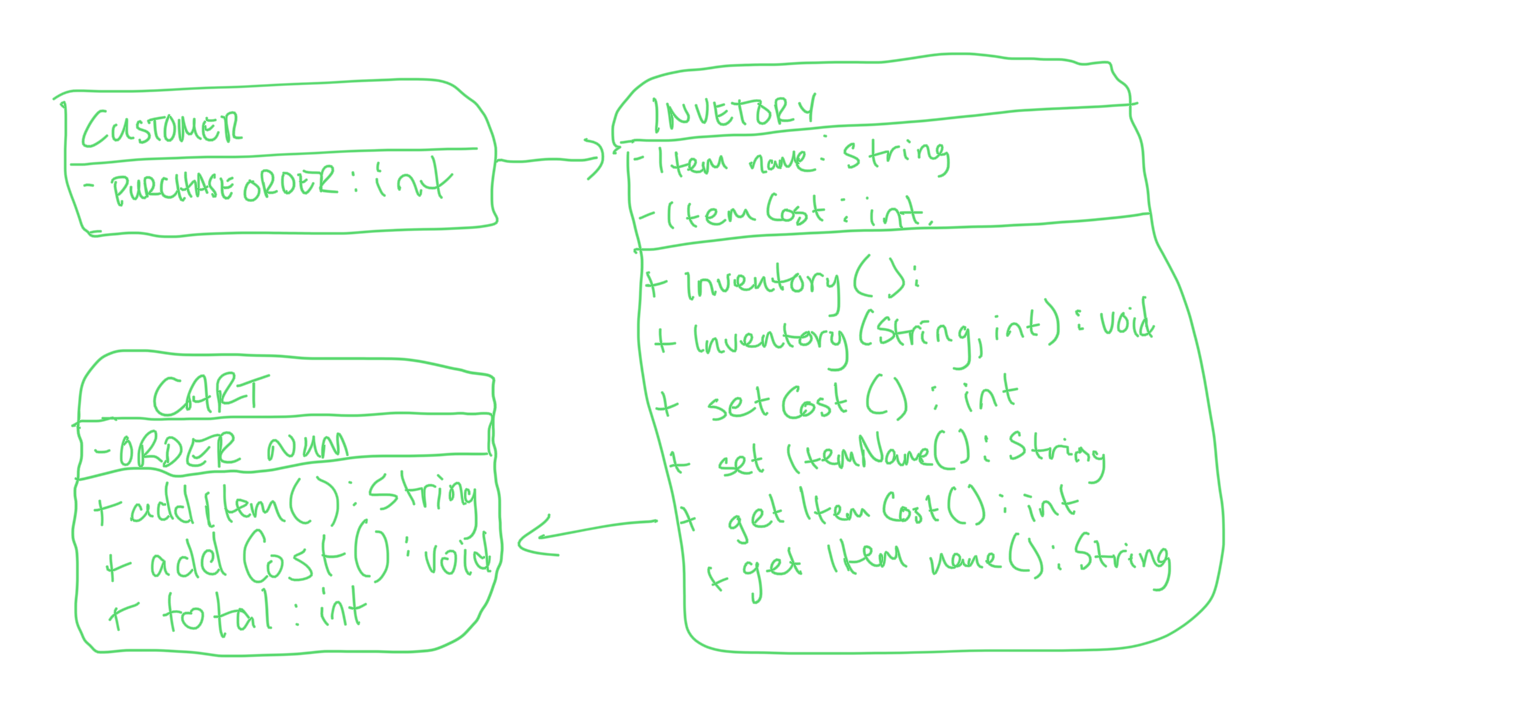 CUSTOMER
- PURCHASE ORDER : int
INVETORY
- Item name : String
- Item Cost : int.
+ Inventory () :
+ Inventory (String, int) : void
+ set Cost () : int
+ set ItemName() : String
+ get Item Cost() : int
+ get Item name() : String
CART
- ORDER NUM
+ add Item() : String
+ add Cost() : void
+ total : int